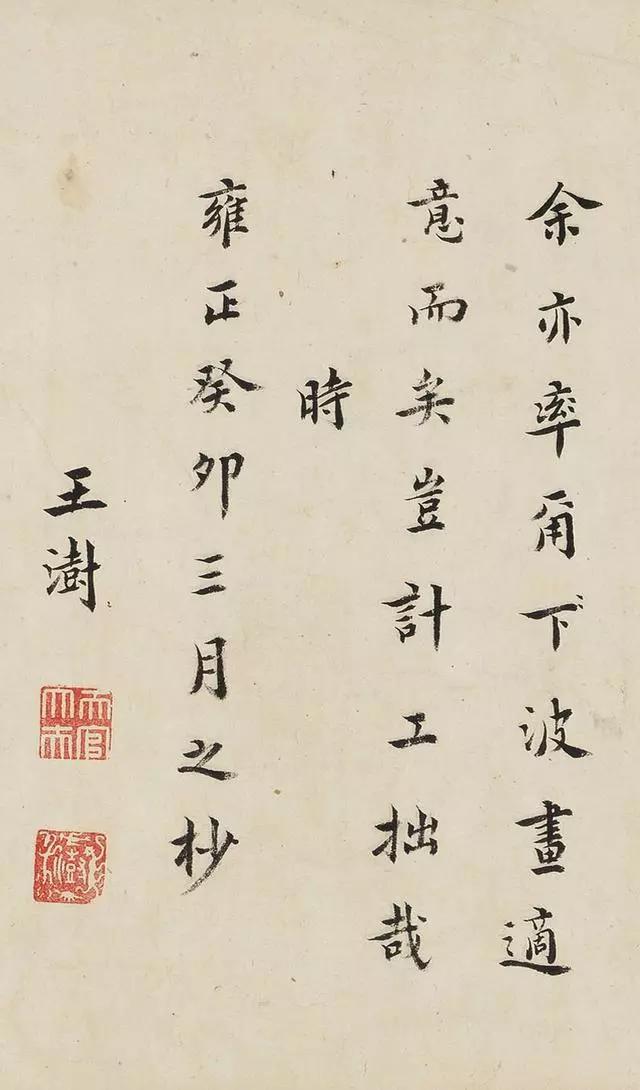 余亦率下波畫適
意而矣豈計工拙哉
時
雍正癸卯三月之杪
王澍